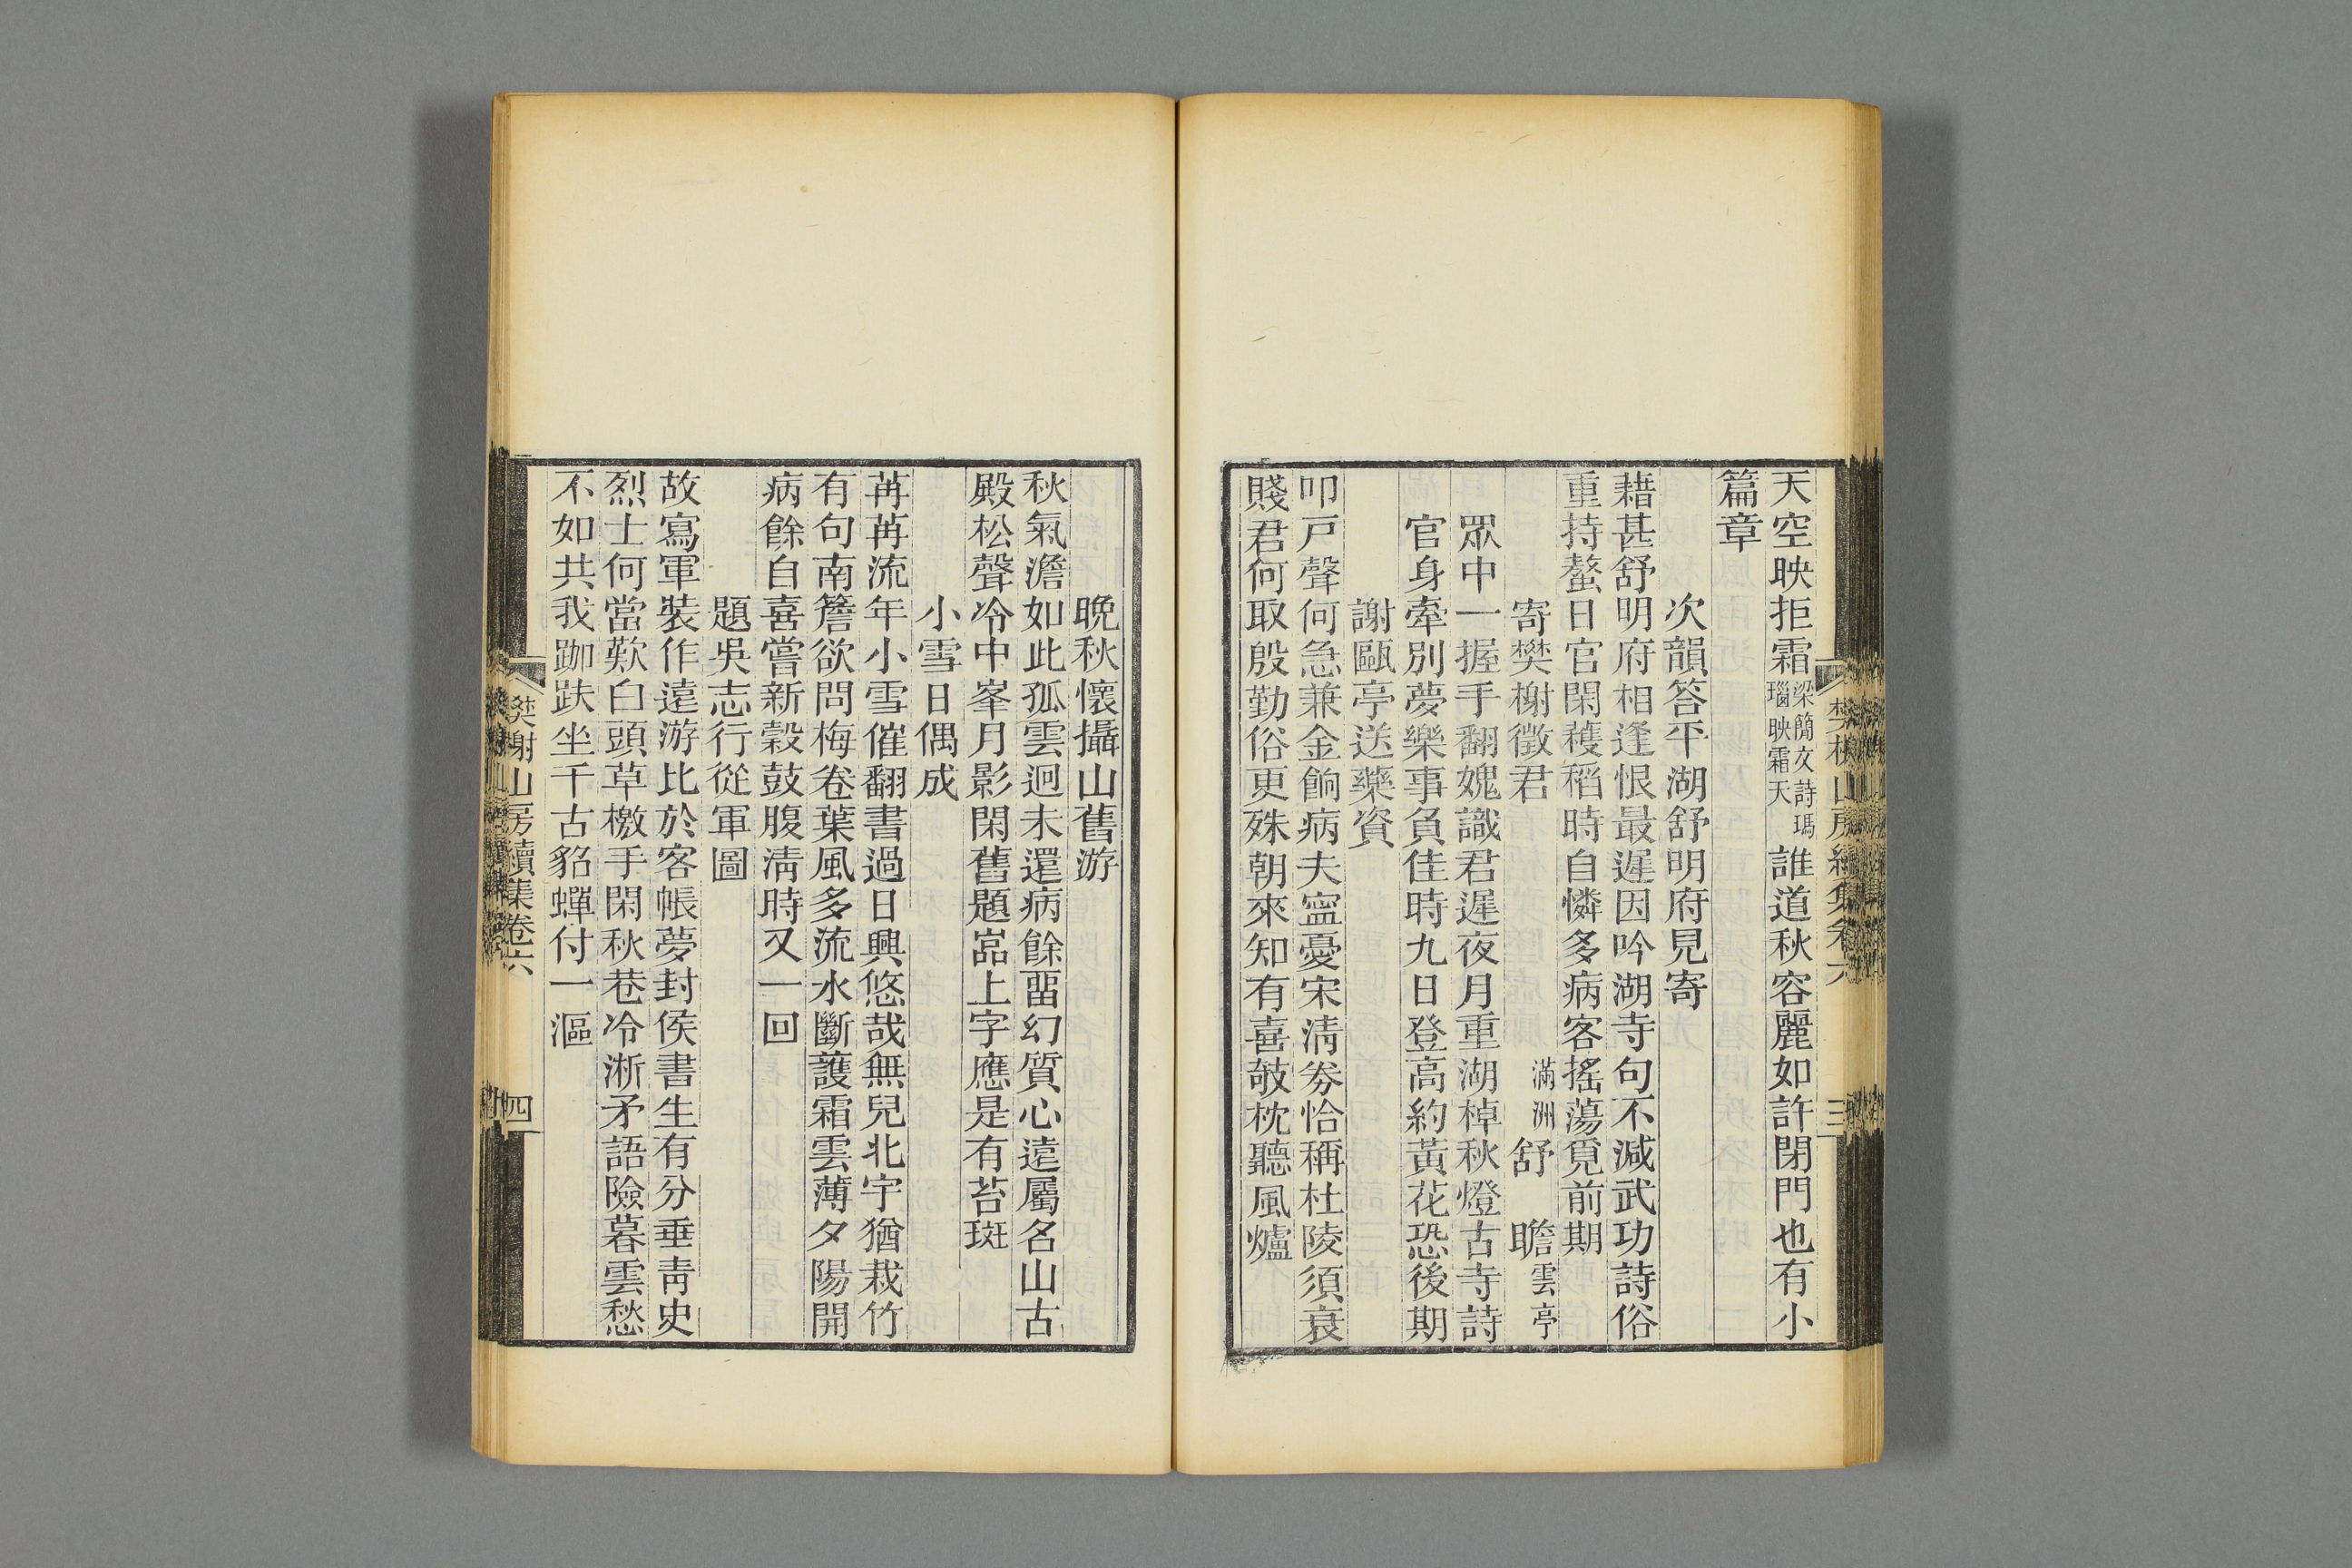 天空映拒霜梁簡文詩瑪瑙映霜天誰道秋容麗如許閉門也有小
篇章
次韻答平湖舒明府見寄
藉甚舒明府相逢恨最遲因吟湖寺句不減武功詩俗
重持螯日官閑穫稻時自憐多病客搖蕩覓前期
寄樊榭徵君 滿洲舒瞻雲亭
眾中一握手翻媿識君遲夜月重湖棹秋燈古寺詩
官身牽別夢樂事負佳時九日登高約黃花恐後期
謝甌亭送藥資
叩戶聲何急兼金餉病夫寍憂宋清券恰稱杜陵須衰
賤君何取殷勤俗更殊朝來知有喜敧枕聽風爐
晚秋懷攝山舊游
秋氣澹如此孤雲迥未還病餘畱幻質心遠屬名山古
殿松聲冷中峯月影閑舊題嵓上字應是有苔斑
小雪日偶成
苒苒流年小雪催翻書過日興悠哉無兒北宇猶栽竹
有句南簷欲問梅卷葉風多流水斷護霜雲薄夕陽開
病餘自喜嘗新穀鼓腹清時又一回
題吳志行從軍圖
故寫軍裝作遠游比於客帳夢封侯書生有分垂青史
烈士何當歎白頭草檄手閑秋巷冷淅矛語險暮雲愁
不如共我跏趺坐千古貂蟬付一漚
樊榭山房續集卷六
四